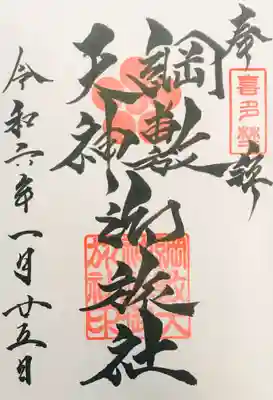 奉拝
喜多埜
綱敷
天神御旅社
令和六年一月廿五日